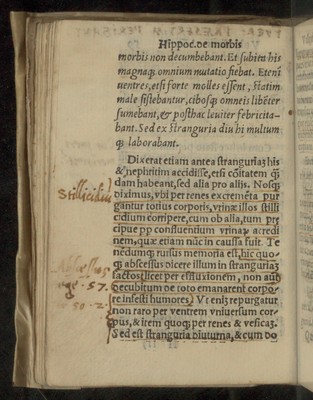 Hippoc. de morbis
morbis non decumbebant. Et subita his
magnaq; omnium mutatio fiebat. Etenī
uentres, etsi forte molles essent, statim
male sistebantur, cibosq; omneis libēter
sumebant, & posthac leuiter febricita-
bant. Sed ex stranguria diu hi multum
q; laborabant.
Dixerat etiam antea stranguriaʒ his
& nephritim accidisse, etsi cōitatem q
dam habeant, sed alia pro aliis. Nosq;
diximus, vbi per renes excremēta pur
gantur totius corporis, vrinæ illos stilli
cidium corripere, cum ob alia, tum præ
cipue pp confluentium vrinaʒ acredi
nem, quæ etiam nūc in caussa fuit. Te
nedumq; rursus memoria est, hic quo-
q; abscessus dicere illum in stranguriaʒ
factos, licet per effluxionem, non aut
decubitum de toto emanarent corpo-
re infesti humores. Vt eniʒ repurgatur
non raro per ventrem vniuersum cor-
pus, & item quoq; per renes & vesicaʒ.
Sed est stranguria diuturna, & cum do
Stillicidiū
57.
50. 2.